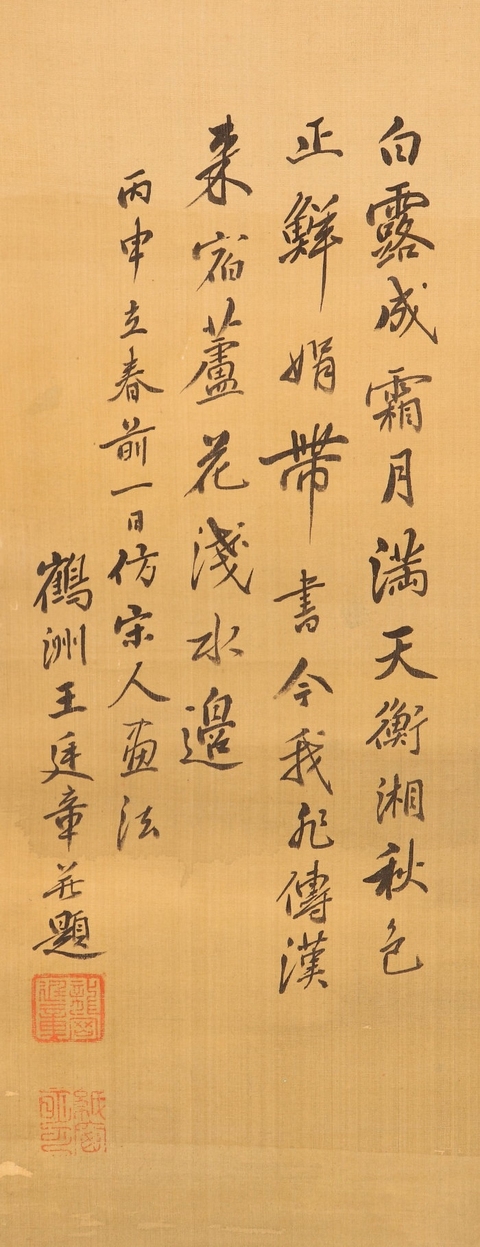 白露成霜月満天衡湘秋色
正鮮娟帶書今我非傳漢
来宿蘆花淺水邊
丙申立春前一日仿宋人画法
鶴洲王廷章并題